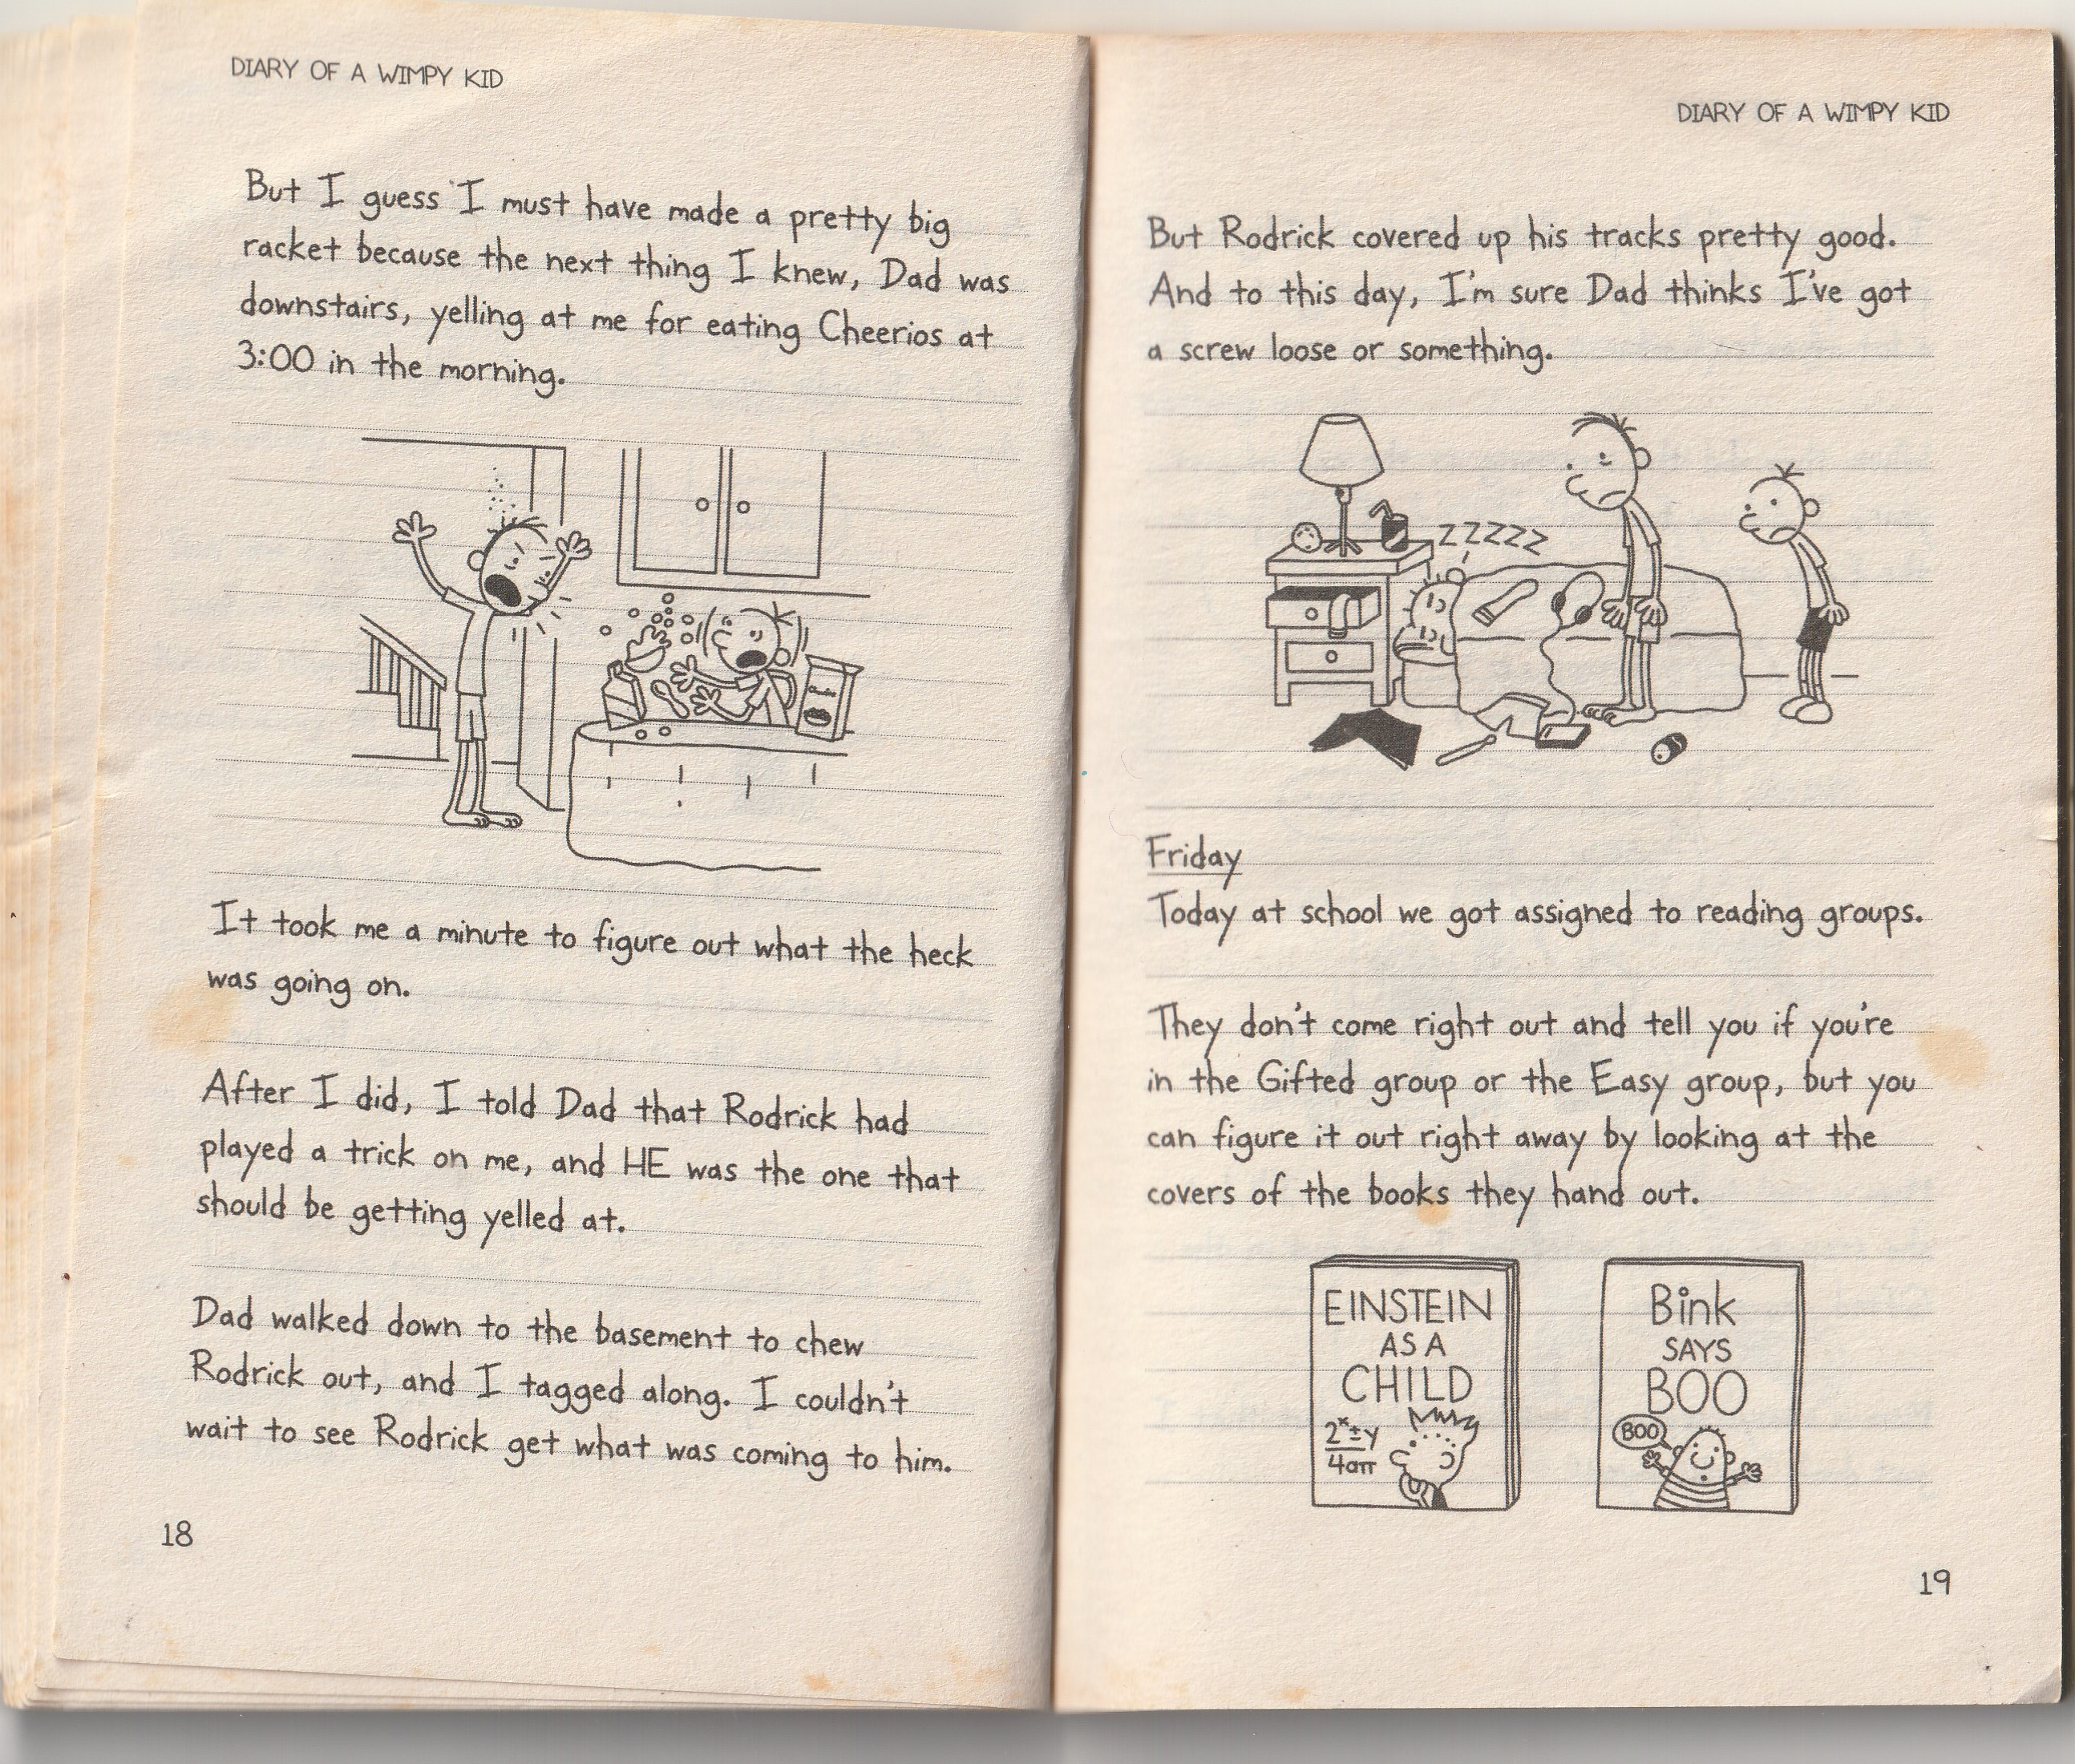 DIARY OF A WIMPY KID
But I guess I must have made a pretty big
racket because the next thing I knew, Dad was
downstairs, yelling at me for eating Cheerios at
3:00 in the morning.
It took me a minute to figure out what the heck
was going on.
After I did, I told Dad that Rodrick had
played a trick on me, and HE was the one that
should be getting yelled at.
Dad walked down to the basement to chew
Rodrick out, and I tagged along. I couldn't
wait to see Rodrick get what was coming to him.
18
DIARY OF A WIMPY KID
But Rodrick covered up his tracks pretty good.
And to this day, I'm sure Dad thinks I've got
a screw loose or something.
ZZZZZ
Friday
Today at school we got assigned to reading groups.
They don't come right out and tell you if you're
in the Gifted group or the Easy group, but you
can figure it out right away by looking at the
covers of the books they hand out.
EINSTEIN
AS A
CHILD
2ˣ±y
4aπ
Bink
SAYS
BOO
BOO
19